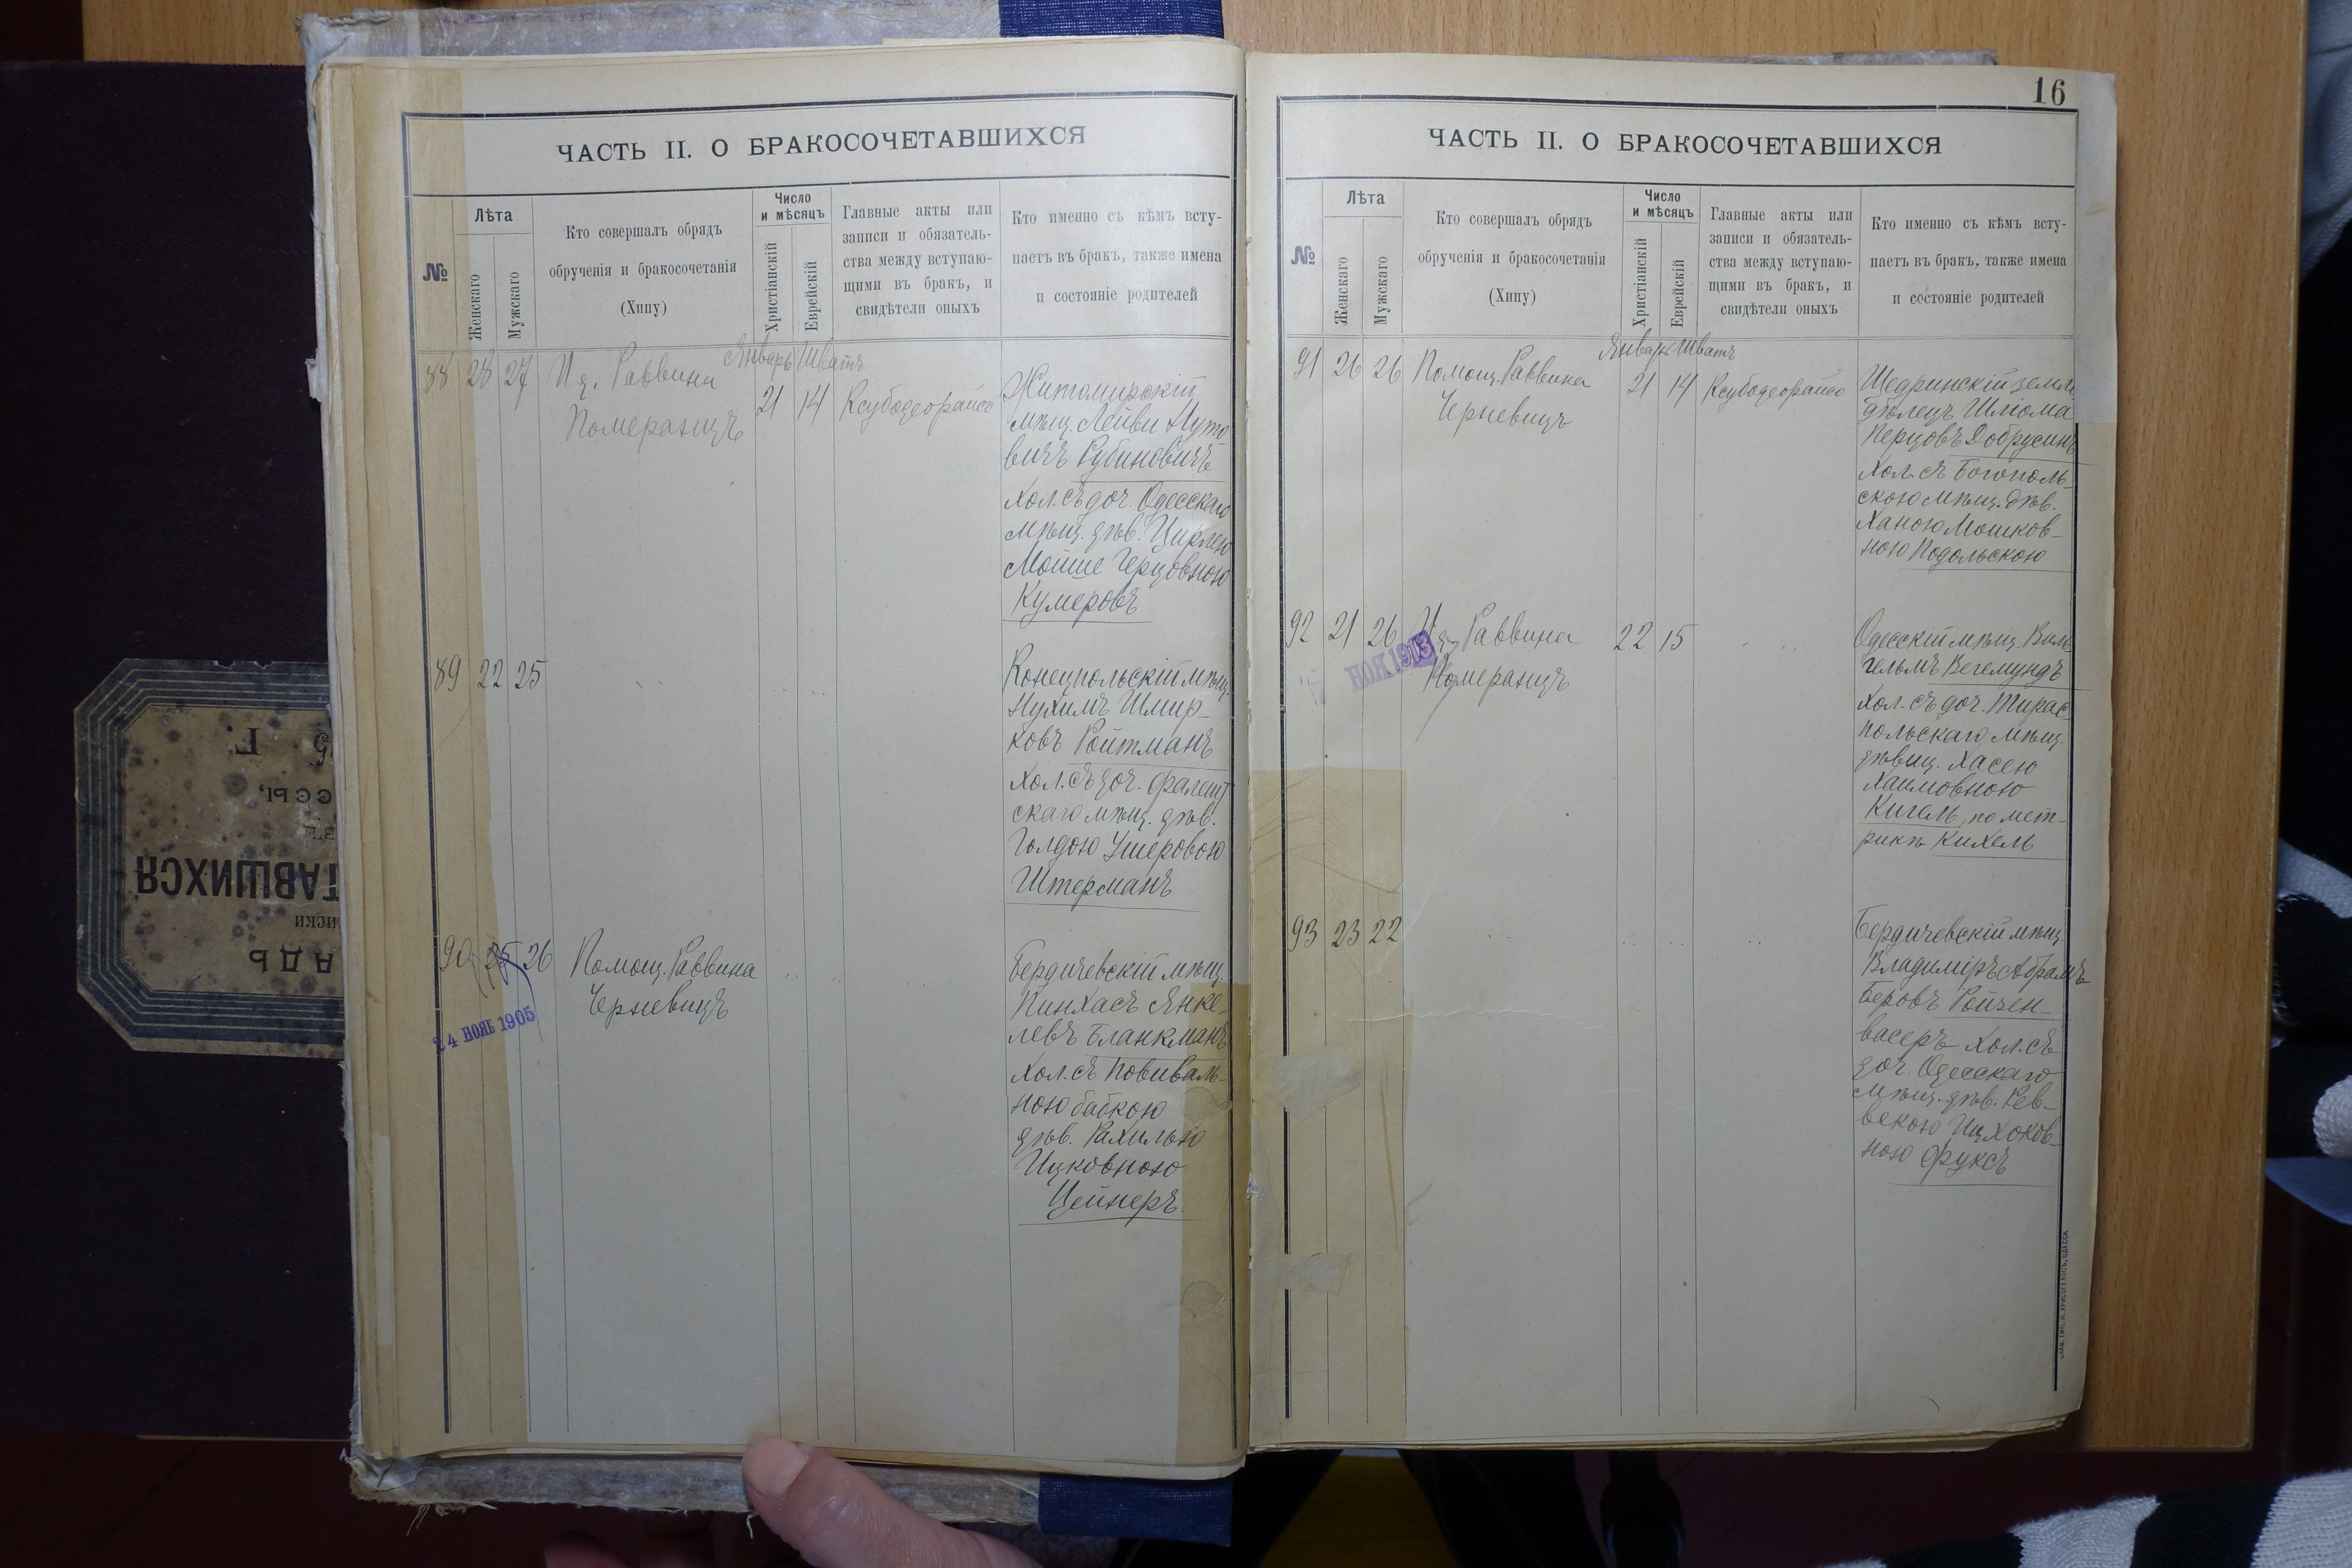 ЧАСТЬ II. О БРАКОСОЧЕТАВШИХСЯ
№
Лѣта
Женскаго
Мужскаго
Кто совершалъ обрядъ
обрученія и бракосочетанія
(Хипу)
Число
и мѣсяцъ
Христіанскій
Еврейскій
Главные акты или
записи и обязатель-
ства между вступаю-
щими въ бракъ, и
свидѣтели оныхъ
Кто именно съ кѣмъ всту-
паетъ въ бракъ, также имена
и состояніе родителей
88 28 27 И д. Раввина
Померанцъ
Январь Шватъ
21 14 Ксубодеорайсо
Житомирскій
мѣщ. Лейви Нуто
вичъ Рубиновичъ
хол. съ доч. Одесскаго
мѣщ. дѣв. Цирлею
Мойше Герцовною
Кумеровъ
89 22 25
Конецпольскій мѣщ.
Нухимъ Шмир-
ковъ Ройтманъ
хол. съ доч. Фалешт
скаго мѣщ. дѣв.
Голдою Ушеровою
Штерманъ
90 25 26 Помощ. Раввина
Черневицъ
24 НОЯБ 1905
Бердичевскій мѣщ.
Пинхасъ Янке-
левъ Бланкманъ
хол. съ повиваль-
ною бабкою
дѣв. Рахилью
Ицковною
Цейнеръ.
16
ЧАСТЬ II. О БРАКОСОЧЕТАВШИХСЯ
№
Лѣта
Женскаго
Мужскаго
Кто совершалъ обрядъ
обрученія и бракосочетанія
(Хипу)
Число
и мѣсяцъ
Христіанскій
Еврейскій
Главные акты или
записи и обязатель-
ства между вступаю-
щими въ бракъ, и
свидѣтели оныхъ
Кто именно съ кѣмъ всту-
паетъ въ бракъ, также имена
и состояніе родителей
91 26 26 Помощ. Раввина
Черневицъ
Январь Шватъ
21 14 Ксубодеорайсо
Щедринскій земле
дѣлецъ Шліома
Перцовъ Добрусинъ
хол. съ Богополь-
скою мѣщ. дѣв.
Ханою Мошков-
ною Подольскою
92 21 26 И д. Раввина
Померанцъ
НОЯ 1913
22 15
Одесскій мѣщ. Виль
гельмъ Вегемундъ
хол. съ доч. Тирас-
польскаго мѣщ.
дѣвиц. Хасею
Хаимовною
Кигель, по мет-
рикѣ Кихель
93 23 22
Бердичевскій мѣщ.
Владиміръ Абрамъ
Беровъ Ройзен-
васеръ хол. съ
доч. Одесскаго
мѣщ. дѣв. Рев-
векою Ицхоков-
ною Фуксъ
ТАВШИХСЯ